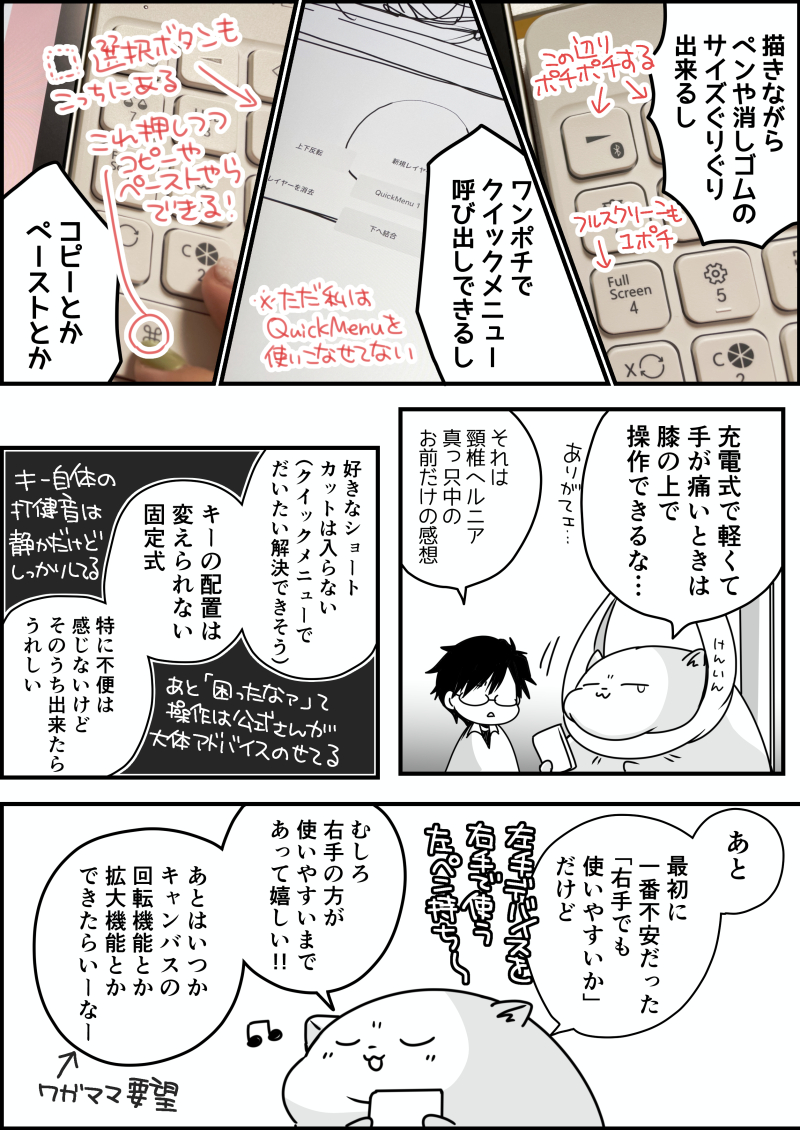 描きながら
ペンや消しゴムの
サイズぐりぐり
出来るし
この辺り
ポチポチする
フルスクリーンも
1ポチ
Full
Screen
4
5
X
C
2
ワンポチで
クイックメニュー
呼び出しできるし
上下反転
新規レイヤ
レイヤーを消去
QuickMenu 1
下へ結合
※ただ私は
QuickMenuを
使いこなせてない
選択ボタンも
こっちにある
これ押しつつ
コピーや
ペーストやら
できる!
C
2
⌘
コピーとか
ペーストとか
充電式で軽くて
手が痛いときは
膝の上で
操作できるな…
ありがてェ…
けんいん
それは
頸椎ヘルニア
真っ只中の
お前だけの感想
好きなショート
カットは入らない
(クイックメニューで
だいたい解決できそう)
キーの配置は
変えられない
固定式
キー自体の
打健音は
静かだけど
しっかりしてる
特に不便は
感じないけど
そのうち出来たら
うれしい
あと「困ったなァ」て
操作は公式さんが
大体アドバイスのせてる
あと
最初に
一番不安だった
「右手でも
使いやすいか」
だけど
左手デバイスを
右手で使う
左ペン持ち〜
むしろ
右手の方が
使いやすいまで
あって嬉しい!!
あとはいつか
キャンバスの
回転機能とか
拡大機能とか
できたらいーなー
ワガママ要望